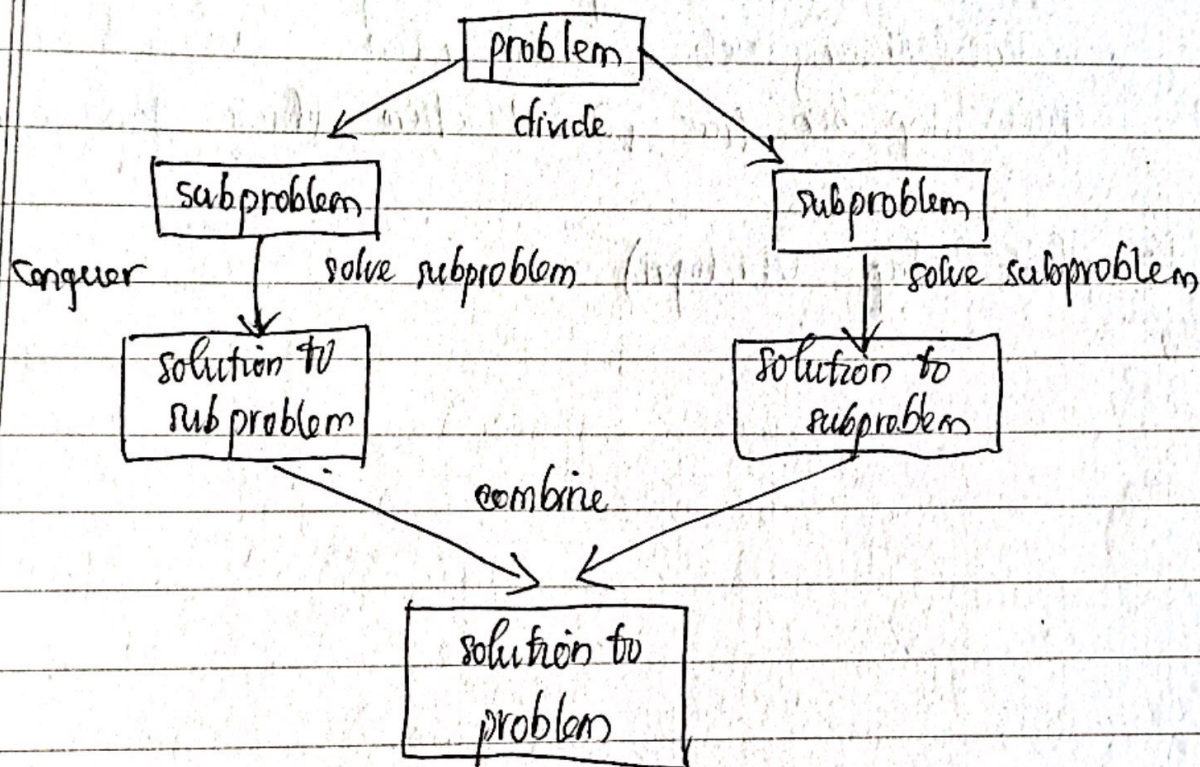 problem
divide
subproblem
subproblem
conquer
solve subproblem
solve subproblem
solution to
subproblem
solution to
subproblem
combine
solution to
problem